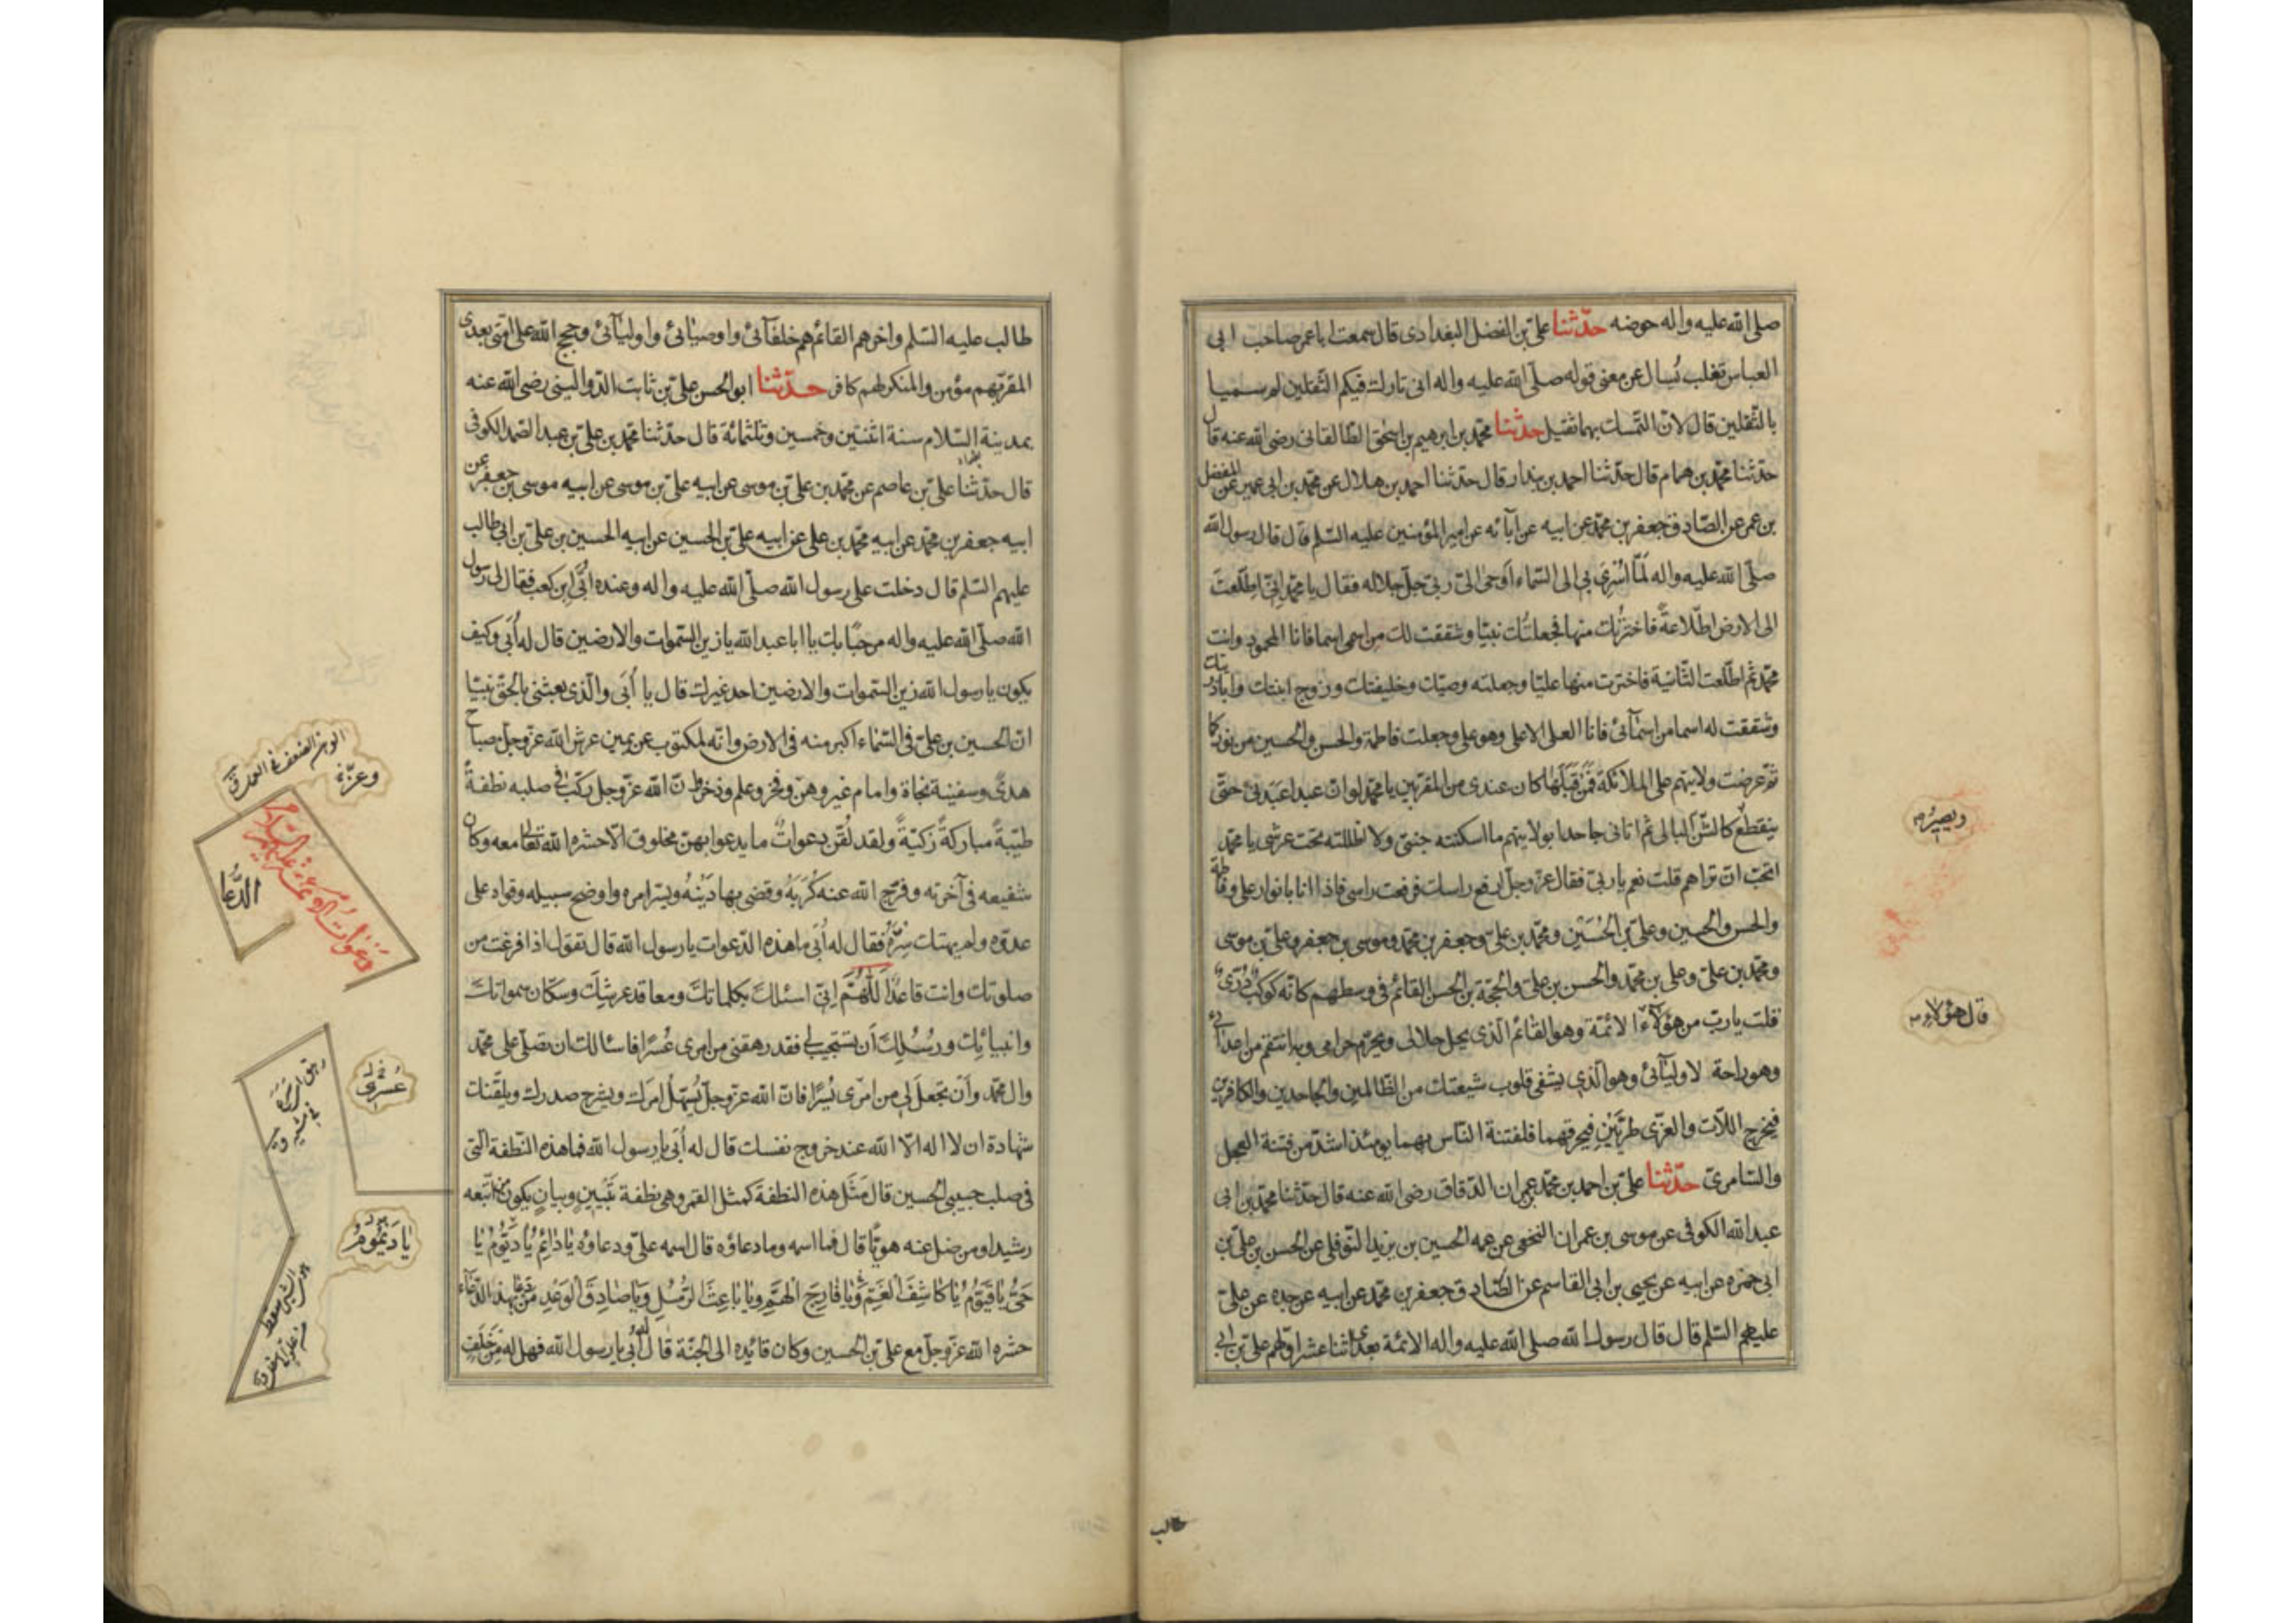 صلى الله عليه واله حوضه حدّثنا على بن الفضل البغدادى قال سمعت ابا عمر صاحب ابى
العباس تغلب يُسال عن معنى قوله صلّى الله عليه واله انى تارك فيكم الثقلين لم سميا
بالثّقلين قال لانّ التمسك بهما ثقيل حدّثنا محمّد بن ابرهيم بن اسحٰق الطالقانى رضى الله عنه قال
حدّثنا محمّد بن همام قال حدّثنا احمد بن بندار قال حدّثنا احمد بن هلال عن محمّد بن ابى عمير عن المفضل
بن عمر عن الصّادق جعفر بن محمّد عن ابيه عن ابآئه عن امير المؤمنين عليه السّلم قال قال رسول الله
صلّى الله عليه واله لمّا اُسْرِىَ بى الى السّماء اَوحىٰ الىّ ربى جلّ جلاله فقال يا محمّد اِنّى اطّلعت
الى الارض اطّلاعةً فاخترتُك منها فجعلتُك نبيّا وشققت لك من اسمى اسما فانا المحمود وانت
محمّد ثم اطّلعت الثّانية فاخترت منها عليّا وجعلته وصيّك وخليفتك وزوج ابنتك وابا ذريتك
وشققت له اسما من اسمآئى فانا العلى الاعلى وهو على وجعلت فاطمة والحسن والحسين من نوركما
ثم عرضت ولايتهم على الملائكة فمَنْ قَبِلَهَا كان عندى من المقربين يا محمّد لو انّ عبدا عَبَدنى حتّى
ينقطع كالشّن البالى ثم اتانى جاحدا بولايتهم ما اسكنته جنتى ولا اظللته تحت عرشى يا محمّد
اتحبّ ان تراهم قلت نعم يا ربّى فقال عزّ وجلّ ارفع راسك فرفعت راسى فاذا انا بانوار على وفاطمة
والحسن والحسين وعلىّ بن الحُسَيْن ومحمّد بن علىّ وجعفر بن محمّد وموسى بن جعفر وعلىّ بن موسى
ومحمّد بن علىّ وعلى بن محمّد والحسن بن على والحجّة بن الحسن القائم فى وسطهم كانّه كوكب دُرّىّ
قلت يا ربّ من هؤلآء الائمّة وهو القائم الّذى يحل حلالى ويحرّم حرامى وبه انتقم من اعدائى
وهو راحة لاوليآئى وهو الّذى يشفى قلوب شيعتك من الظّالمين والجاحدين والكافرين
فيخرج اللّات والعزّى طريّين فيحرقهما فلفتنة النّاس بهما يومئذ اشدّ من فتنة العجل
والسّامرىّ حدّثنا علىّ بن احمد بن محمّد بن عمران الدّقاق رضى الله عنه قال حدّثنا محمّد بن ابى
عبد الله الكوفى عن موسى بن عمران النخعى عن عمه الحسين بن يزيد النّوفلى عن الحسن بن علىّ بن
ابى حمزه عن ابيه عن يحيى بن ابى القاسم عن الصّادق جعفر بن محمّد عن ابيه عن جده عن علىّ
عليهم السّلم قال قال رسول الله صلى الله عليه واله الائمّة بعدى اثنا عشر اوّلهم علىّ بن ابى
قال هؤلاء
طالب
طالب عليه السّلم واخرهم القائم هم خلفآئى واوصيٰائى واوليٰآئى وحجج الله على امّتى بعدى
المقر بهم مؤمن والمنكر لهم كافر حدّثنا ابو الحسن علىّ بن ثابت الدّواليبى رضى الله عنه
بمدينة السّلام سنة اثنتين وخمسين وثلثمائة قال حدّثنا محمّد بن علىّ بن عبد الصّمد الكوفى
قال حدّثنا علىّ بن عاصم عن محمّد بن علىّ بن موسى عن ابيه علىّ بن موسى عن ابيه موسى بن جعفر عن
ابيه جعفر بن محمّد عن ابيه محمّد بن على عن ابيه علىّ بن الحسين عن ابيه الحسين بن علىّ بن ابى طالب
عليهم السّلم قال دخلت على رسول الله صلّى الله عليه واله وعنده اُبَىّ ابن كعب فقال لى رسول
الله صلّى الله عليه واله مرحبًا بك يا ابا عبد الله يا زين السّموات والارضين قال له اُبَى وكيف
يكون يا رسول الله زين السّموات والارضين احد غيرك قال يا اُبَى والّذى بعثنى بالحقّ نبيّا
انّ الحسين بن علىّ فى السّمٰاء اكبر منه فى الارض وانّه لمكتوب عن يمين عرش الله عزّ وجلّ مصباح
هدىً وسفينة نجاة وامام غير وهن وفخر وعلم وذخر وانّ الله عزّ وجلّ ركّب فى صلبه نطفةً
طيّبةً مباركةً زكيّةً ولقد لُقّن دعواتٌ ما يدعوا بهنّ مخلوق الّا حشره الله تعالى معه وكان
شفيعه فى آخرته وفرّج الله عنه كُرَبَهُ وقضى بها دَيْنُهُ ويسّر امره واوضح سبيله وقواه على
عدوّه ولم يهتك سِرّهُ فقال له اُبَى ما هذه الدّعوات يا رسول الله قال تقول اذا فرغت من
صلوتك وانت قاعدٌ اَللّٰهُمَّ اِنّى اسئلك بكلماتك ومعاقد عرشك وسكّان سمواتك
وانبيائك ورسُلِك اَن تستجيب لى فقد رهقنى من امرى عُسْرًا فاسالك ان تصلّى على محمّد
وال محمّد وَاَنْ تجعل لى من امْرى يُسْرًا فانّ الله عزّ وجلّ يُسَهّل امرَك ويشرح صدرك ويلقّنك
شهادة ان لا اله الّا الله عند خروج نفسك قال له اُبَى يا رسول الله فما هذه النّطفة الّتى
فى صلب حبيبى الحسين قال مَثَل هذه النطفة كمثل القمر وهى نطفة تَبْيِينٍ وبيانٍ يكون من اتّبعه
رشيدا ومن ضلّ عنه هويّا قال فما اسمه وما دعاؤه قال اسمه علىّ ودعاؤه يٰا دٰائِمُ يٰا دَيُّومُ يٰا
حَىُّ يٰا قَيّوُمُ يٰا كٰاشِفَ الْغَمِّ وَيٰا فٰارِجَ الْهَمِّ ويٰا بٰاعِثَ الرُّسُلِ وَيٰا صٰادِقَ الْوَعْدِ من دعا بهذا الدّعآء
حشره الله عزّ وجلّ مع علىّ بن الحسين وكان قائده الى الجنّة قال له اُبى يا رسول الله فهل له من خَلَفٍ
الوهن الضعف فى العمل ق
الدّعا
عُسرى
يا دَيْمُومُ